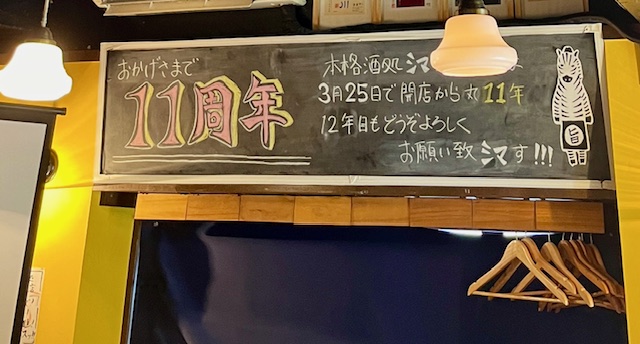 おかげさまで
11周年
本格酒処 シマ
3月25日で開店から丸11年
12年目もどうぞよろしく
お願い致シマす!!!
旨